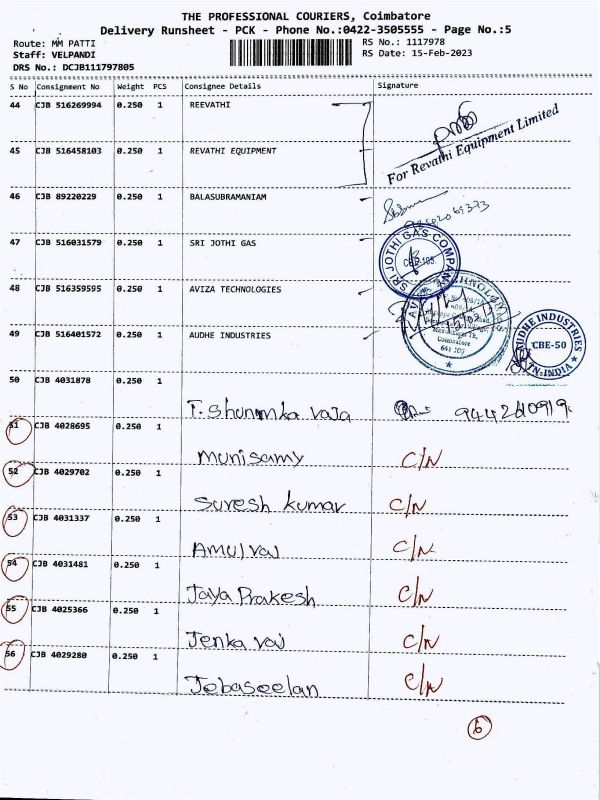 THE PROFESSIONAL COURIERS, Coimbatore
Delivery Runsheet - PCK - Phone No.:0422-3505555 - Page No.:5
Route: MM PATTI RS No.: 1117978
Staff: VELPANDI RS Date: 15-Feb-2023
DRS No.: DCJB111797805
S No Consignment No Weight PCS Consignee Details Signature
44 CJB 516269994 0.250 1 REEVATHI
For Revathi Equipment Limited
45 CJB 516458103 0.250 1 REVATHI EQUIPMENT
46 CJB 89220229 0.250 1 BALASUBRAMANIAM
47 CJB 516031579 0.250 1 SRI JOTHI GAS
SRI JOTHI GAS COMPANY
48 CJB 516359595 0.250 1 AVIZA TECHNOLOGIES
Coimbatore
641 105
49 CJB 516401572 0.250 1 AUDHE INDUSTRIES
AUDHE INDUSTRIES
CBE-50
TN-INDIA
50 CJB 4031878 0.250 1
T. Shunmka vaja
51 CJB 4028695 0.250 1
Munisamy C/N
52 CJB 4029702 0.250 1
Suresh kumar C/N
53 CJB 4031337 0.250 1
Amul vaj C/N
54 CJB 4031481 0.250 1
Jaya Prakesh C/N
55 CJB 4025366 0.250 1
Jenka vaj C/N
56 CJB 4029280 0.250 1
Jebaseelan C/N
6